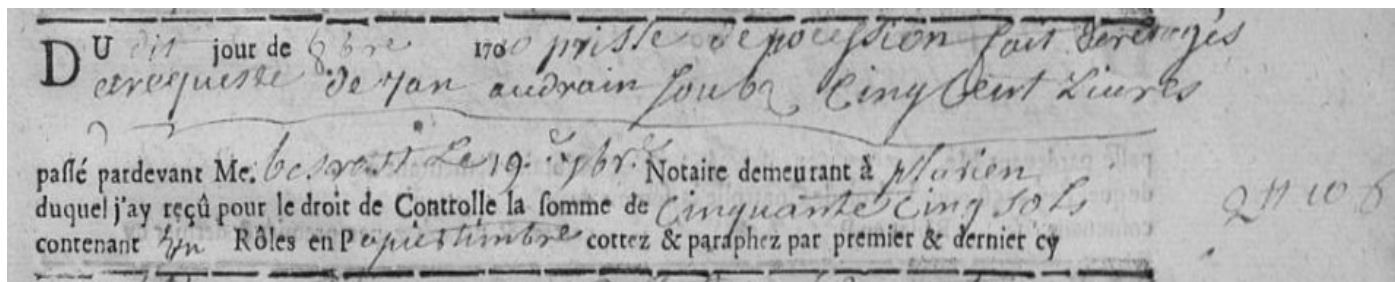 DU dit jour de 8bre 1700 prisse de pocession fait
et requeste de Jan audrain soubz Cinq Cent Liures
passé pardevant Me. Le 19. 7br. Notaire demeurant à plurien
duquel j'ay reçû pour le droit de Controlle la somme de Cinquante Cinq sols
contenant un Rôles en Papier timbre cottez & paraphez par premier & dernier cy